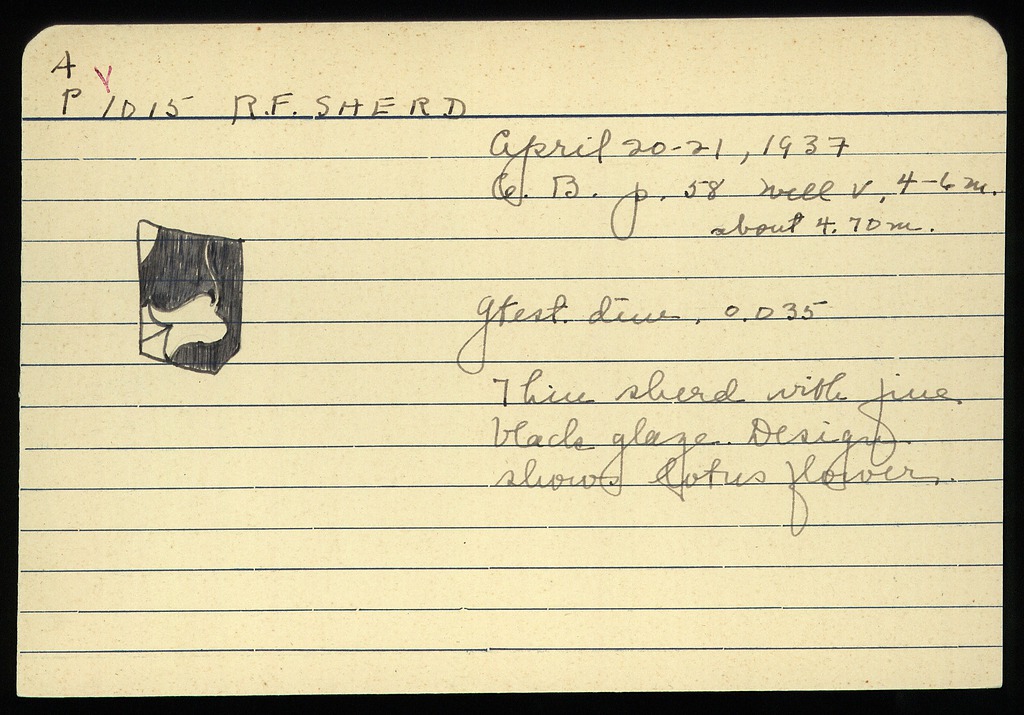 A
P 1015 R.F. SHERD
April 20-21, 1937
C. B. p. 58 well V, 4-6 m.
about 4.70 m.
gtest. dim. 0.035
Thin sherd with fine
black glaze. Design
shows lotus flower.